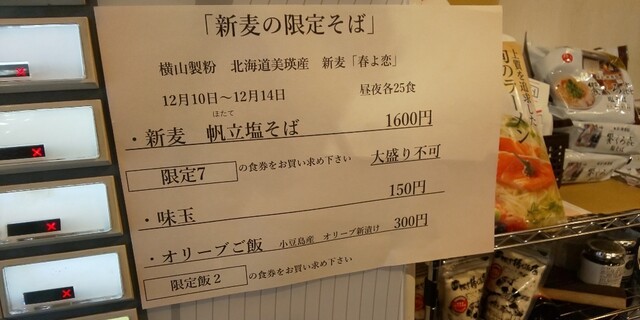 「新麦の限定そば」
横山製粉 北海道美瑛産 新麦「春よ恋」
12月10日～12月14日 昼夜各25食
ほたて
・新麦 帆立塩そば 1600円
限定7 の食券をお買い求め下さい 大盛り不可
・味玉 150円
・オリーブご飯 小豆島産 オリーブ新漬け 300円
限定飯2 の食券をお買い求め下さい